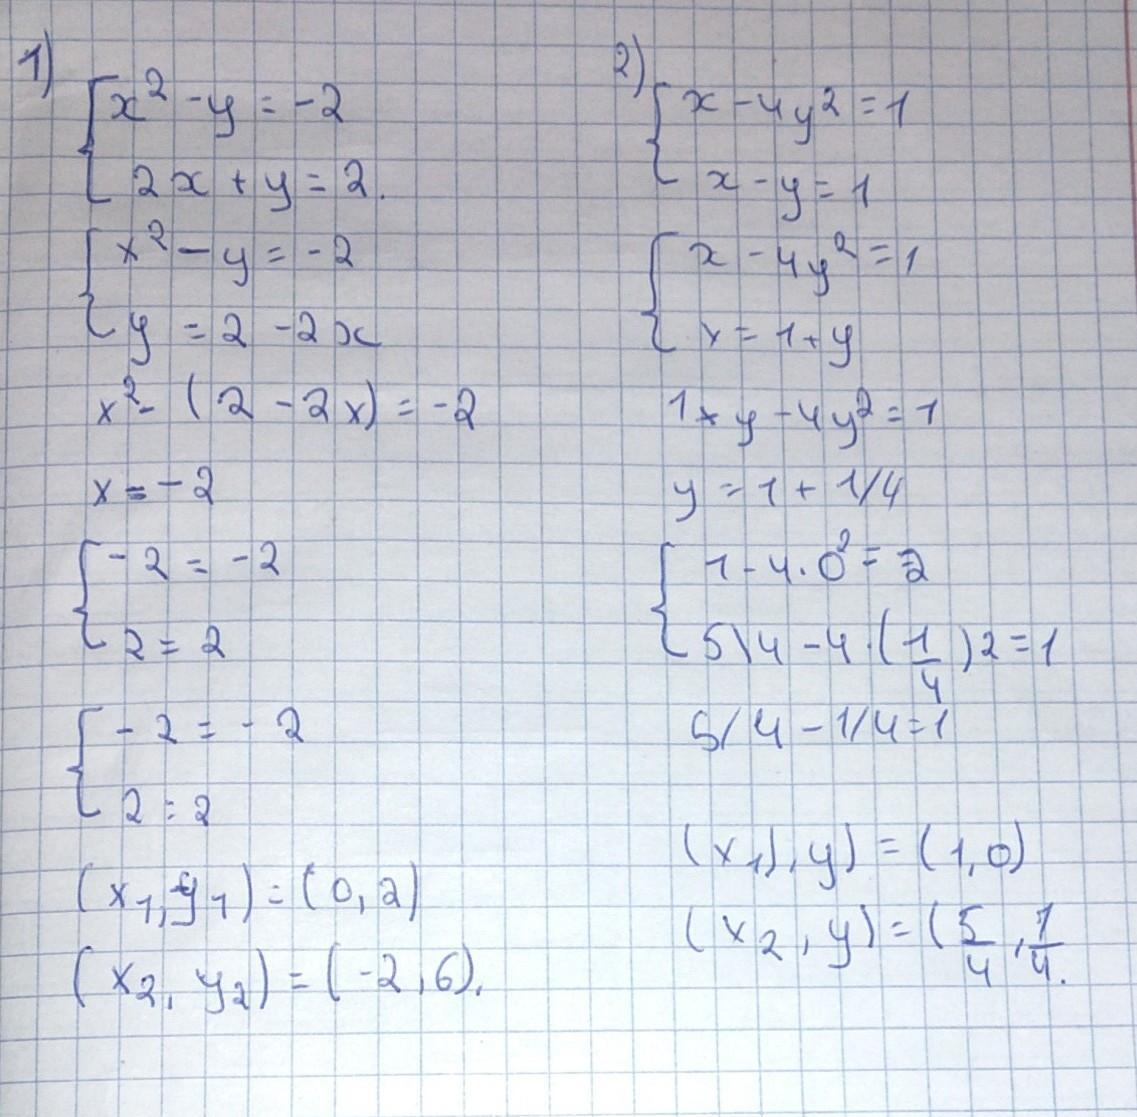 1)
x² - y = -2
2x + y = 2.
x² - y = -2
y = 2 - 2x
x² - (2 - 2x) = -2
x = -2
-2 = -2
2 = 2
-2 = -2
2 = 2
(x₁, y₁) = (0, 2)
(x₂, y₂) = (-2, 6).
2)
x - 4y² = 1
x - y = 1
x - 4y² = 1
x = 1 + y
1 + y - 4y² = 1
y = 1 + 1/4
1 - 4 · 0² = 2
5\4 - 4 · (1/4)2 = 1
5/4 - 1/4 = 1
(x₁), y) = (1, 0)
(x₂, y) = (5/4, 1/4.